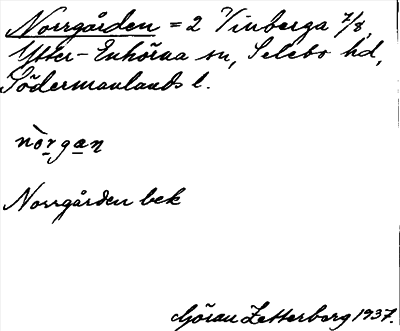 Norrgården = 2 Vinberga 7/8,
Ytter-Enhörna sn, Selebo hd,
Södermanlands l.
nòrgan
Norrgården bek
Göran Zetterberg 1937.